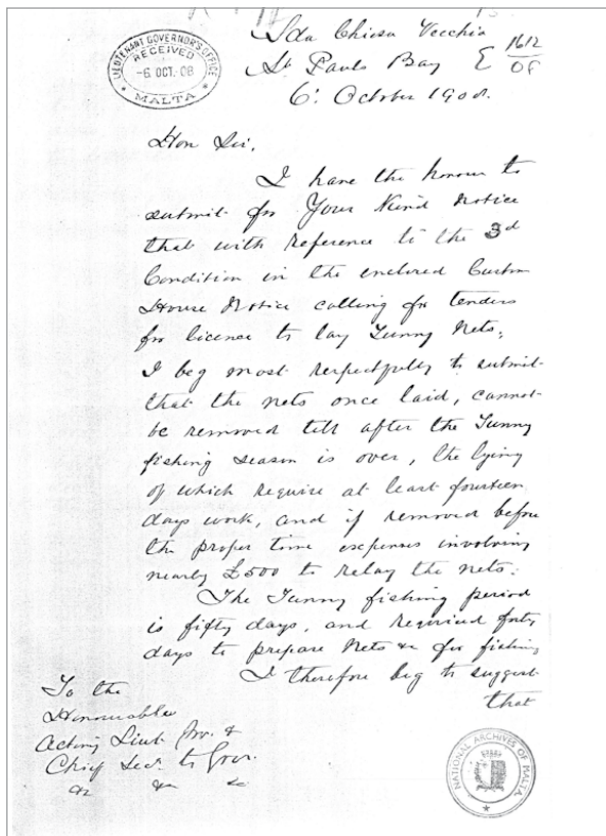 LIEUTENANT GOVERNOR'S OFFICE
RECEIVED
-6 OCT. 08
MALTA
Sda Chiesa Vecchia
St Pauls Bay
1612/08
6: October 1908.
Hon Sir,
I have the honour to
submit for Your Kind Notice
that with reference to the 3d
Condition in the enclosed Custom
House Notice calling for tenders
for licence to lay Tunny Nets;
I beg most respectfully to submit
that the nets once laid, cannot
be removed till after the Tunny
fishing season is over, the lying
of which require at least fourteen
days work, and if removed before
the proper time expenses involving
nearly £500 to relay the nets.
The Tunny fishing period
is fifty days, and required forty
days to prepare Nets &c for fishing
I therefore beg to suggest
that
To the
Honourable
Acting Lieut Gov. &
Chief Sec. to Gov.
&c &c &c
NATIONAL ARCHIVES OF MALTA